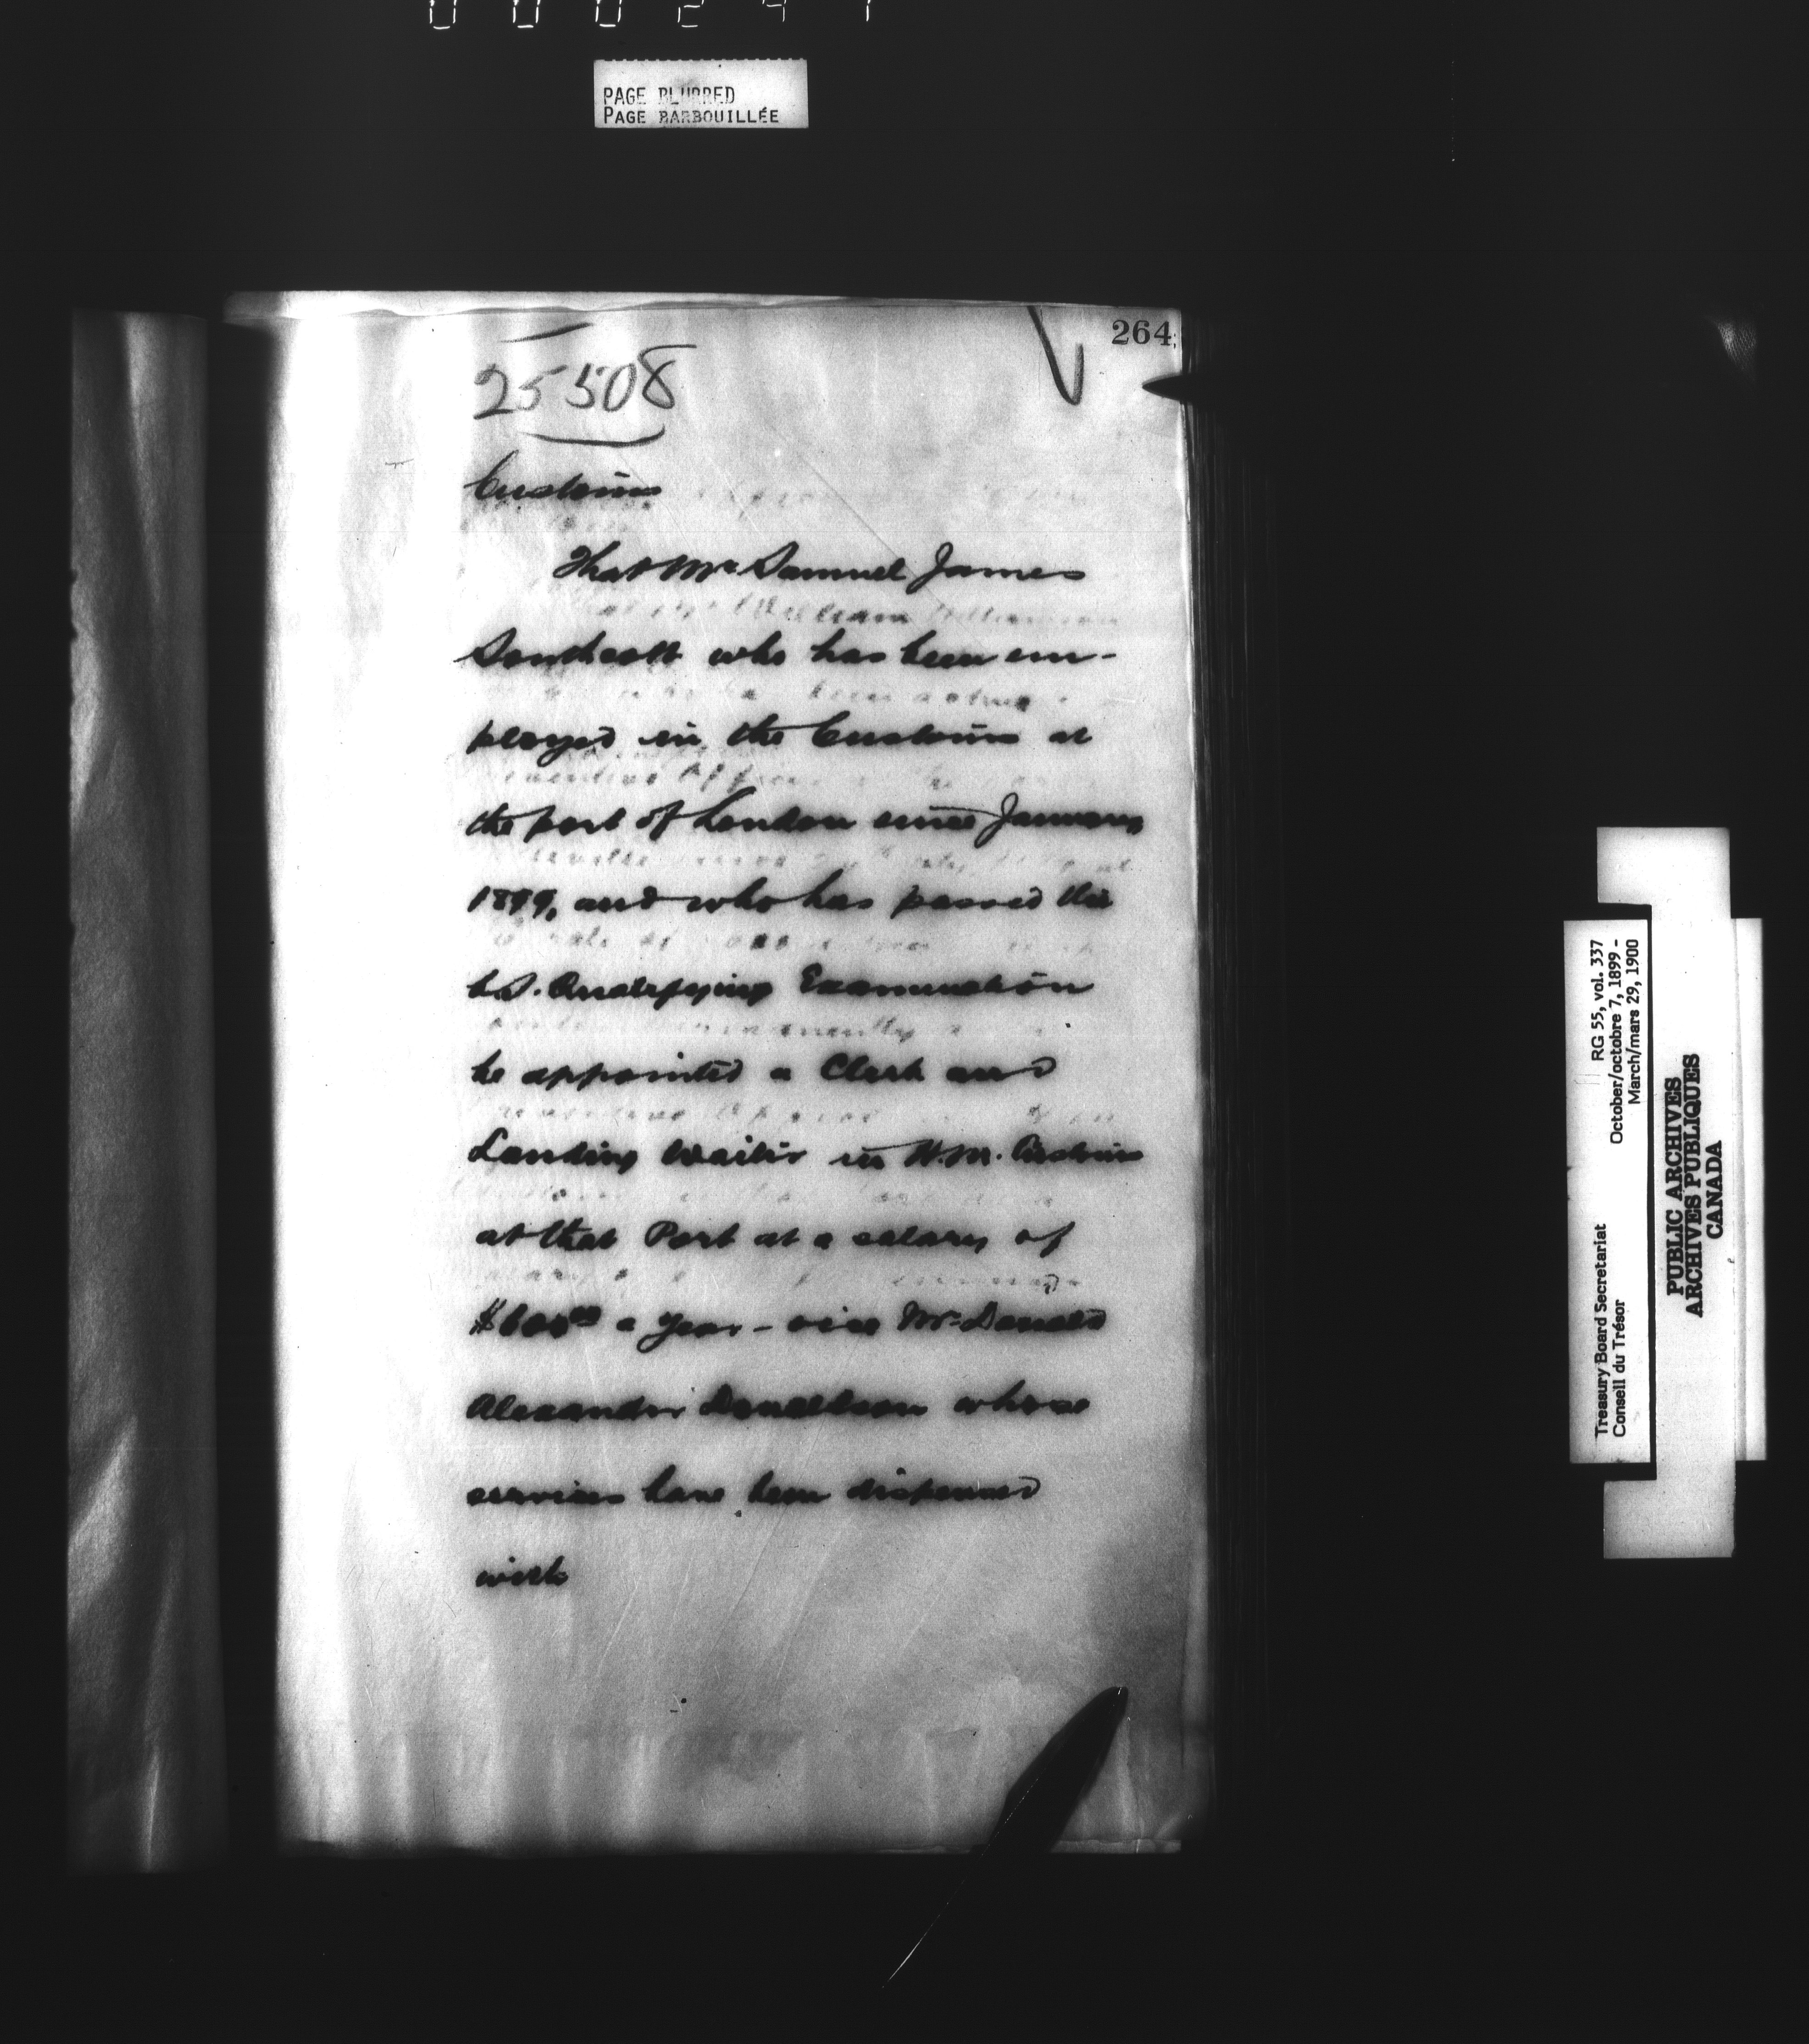 PAGE BLURRED
PAGE BARBOUILLÉE
264
25508
Customs
That Mr Samuel James
Southcott who has been em-
ployed in the Customs at
the port of London since January
1899, and who has passed the
C.S. Qualifying Examination
be appointed a Clerk and
Landing Waiter in H.M. Customs
at that Port at a salary of
$600.00 a year - vice Mr Donald
Alexander Donaldson whose
services have been dispensed
with
RG 55, vol. 337
October/octobre 7, 1899 -
March/mars 29, 1900
Treasury Board Secretariat
Conseil du Trésor
PUBLIC ARCHIVES
ARCHIVES PUBLIQUES
CANADA